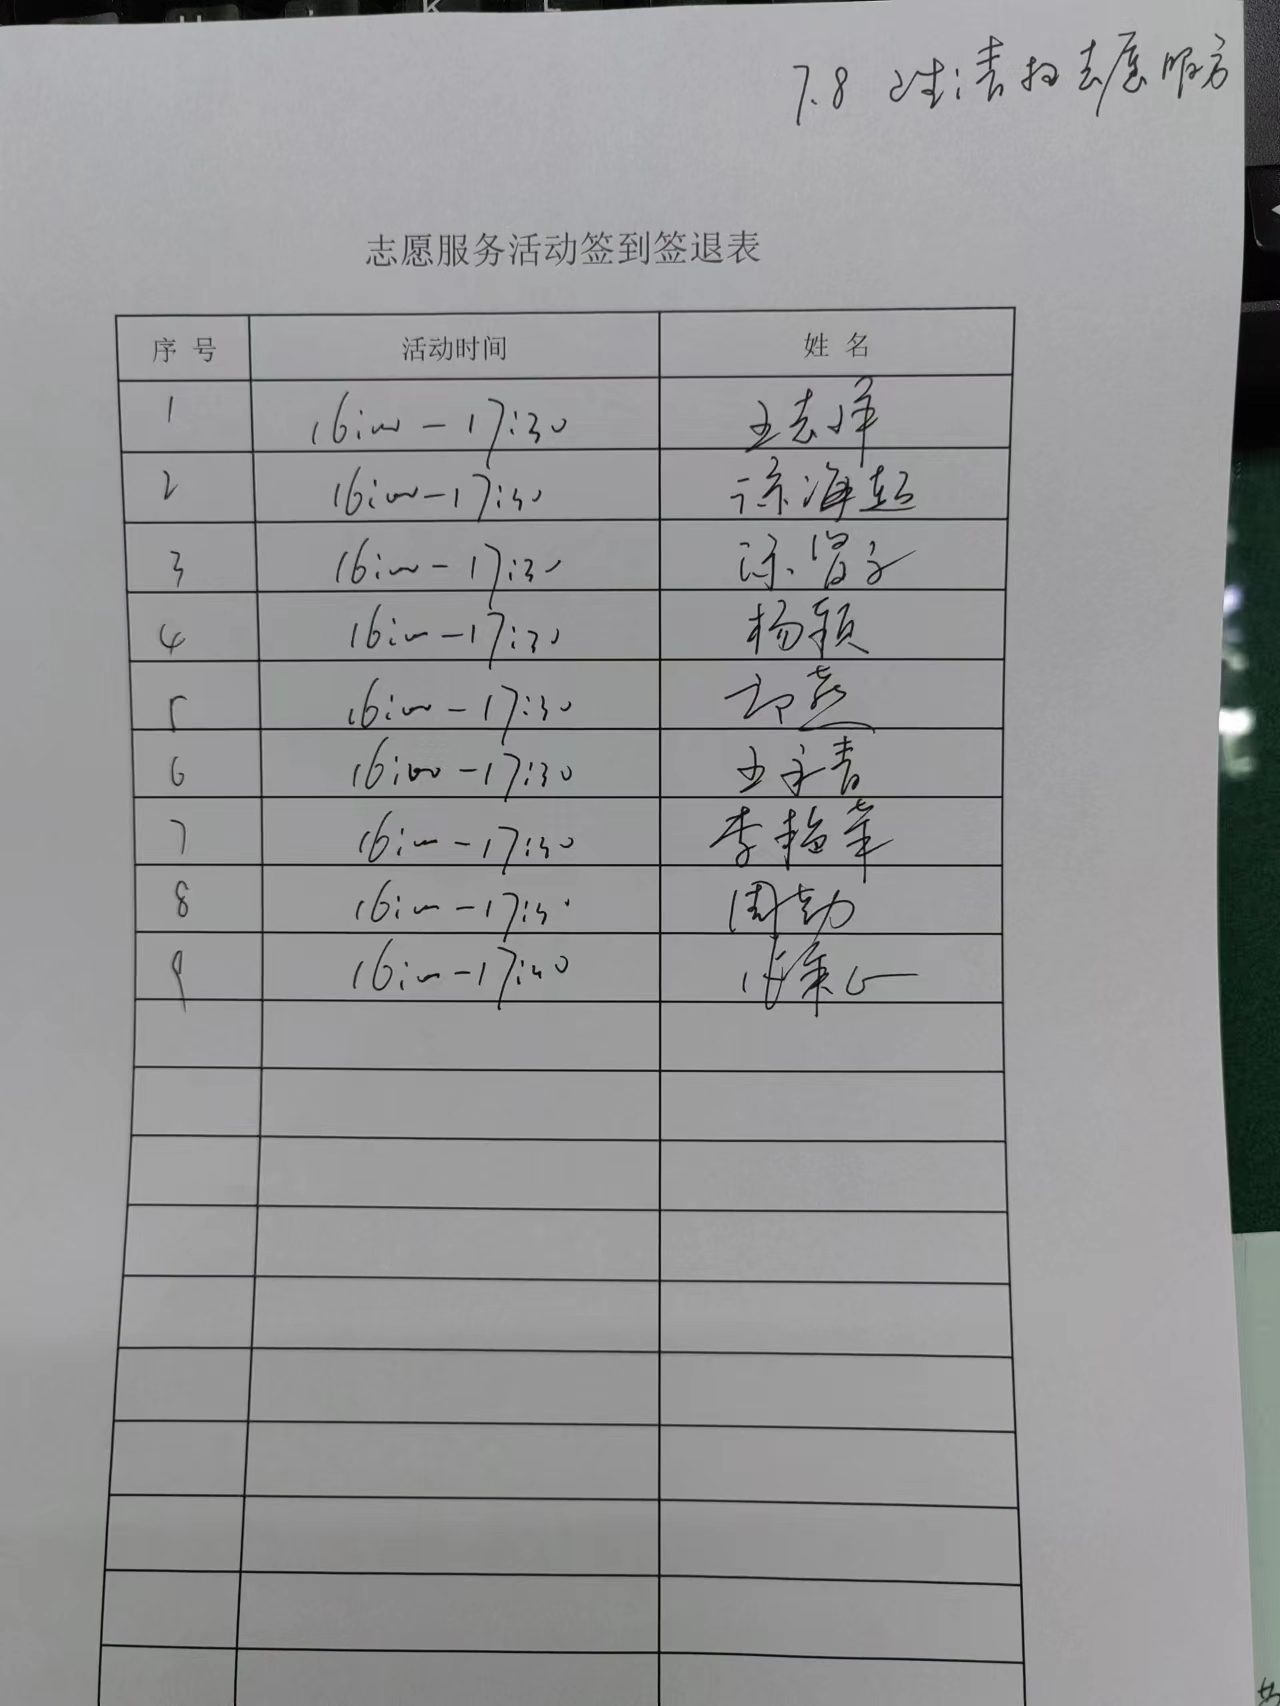 7.8 卫生清扫志愿服务
志愿服务活动签到签退表
序 号 活动时间 姓 名
1 16:00-17:30 王志洋
2 16:00-17:30 海超
3 16:00-17:30
4 16:00-17:30 杨颖
5 16:00-17:30 邱燕
6 16:00-17:30 王永青
7 16:00-17:30 李艳华
8 16:00-17:30 周劲
9 16:00-17:40